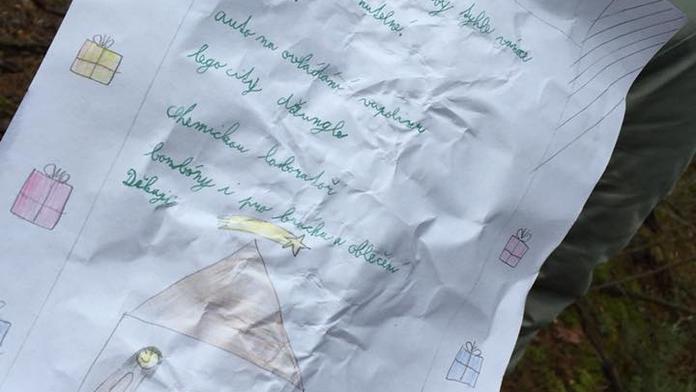 by tyhle
nutelné.
auto na ovládání
lego city džungle
chemickou laboratoř
bombóny i pro bráchu a oblečení
Děkuji